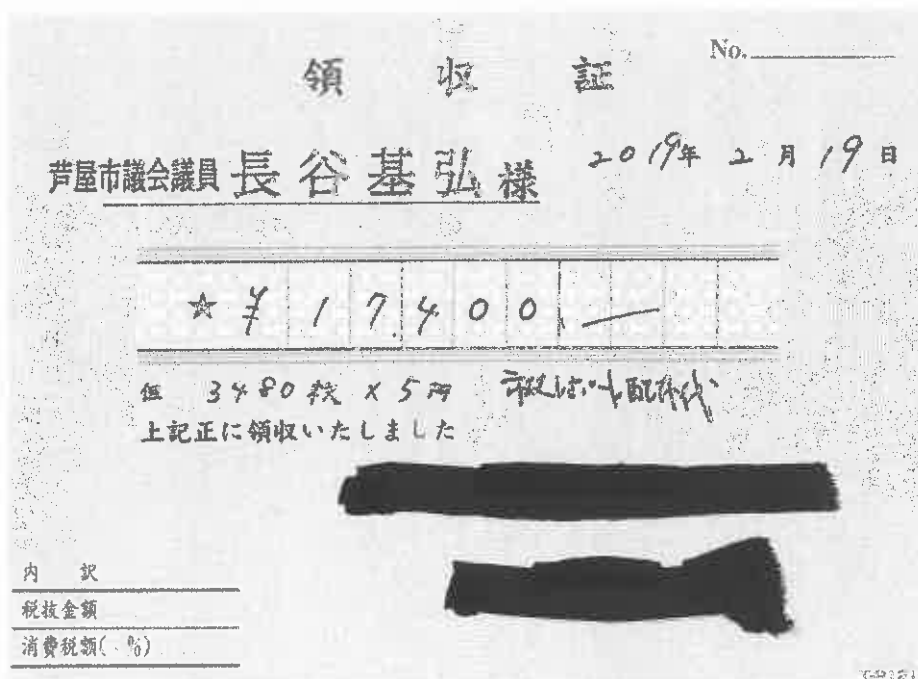 No.
領収証
芦屋市議会議員 長谷基弘様 2019年2月19日
★ ¥17,400.—
但 3480枚 × 5円 市政レポート配布代
上記正に領収いたしました
内 訳
税抜金額
消費税額( %)